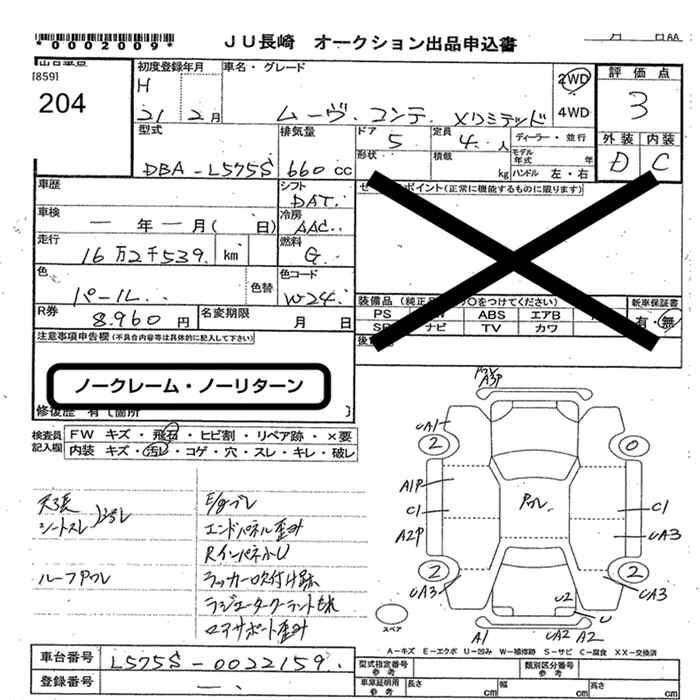 *0002009*
JU長崎 オークション出品申込書
月 日AA
出品番号
[859]
204
初度登録年月
H
21 2月
車名・グレード
ムーヴ. コンテ. Xリミテッド
2WD
4WD
評価点
3
外装 内装
D C
型式
DBA-L575S
排気量
660 cc
ドア
5
定員
4 人
ディーラー・並行
形状
積載
kg
モデル年式 年
ハンドル 左・右
車歴
シフト
DAT.
車検 ー 年 ー 月( 日)
冷房
AAC.
走行
16万2千539. km
燃料
G.
色
パール..
色替
色コード
W24.
R券
8.960 円
名変期限
月 日
ポイント(正常に機能するものに限ります)
装備品
つけてください)
新車保証書
有・無
PS ABS エアB
ナビ TV カワ
注意事項申告欄(不具合内容等は具体的に記入して下さい)
ノークレーム・ノーリターン
修復歴 有〔箇所 〕
検査員記入欄
FW キズ・飛石・ヒビ割・リペア跡・×要
内装 キズ・汚レ・コゲ・穴・スレ・キレ・破レ
シートスレ
エンドパネル歪み
ラジエータークーラントもれ
コアサポート歪み
A3P
UA1
2
0
A1P
C1
A2P
C1
UA3
2
2
UA3
UA3
U2
U
A1
UA2 A2
スペア
A-キズ E-エクボ U-凹み W-補修跡 S-サビ C-腐食 XX-交換済
車台番号
L575S-0022159.
登録番号
型式指定番号
参考
類別区分番号
参考
車庫証明用
参考
長さ cm
幅 cm
高さ cm